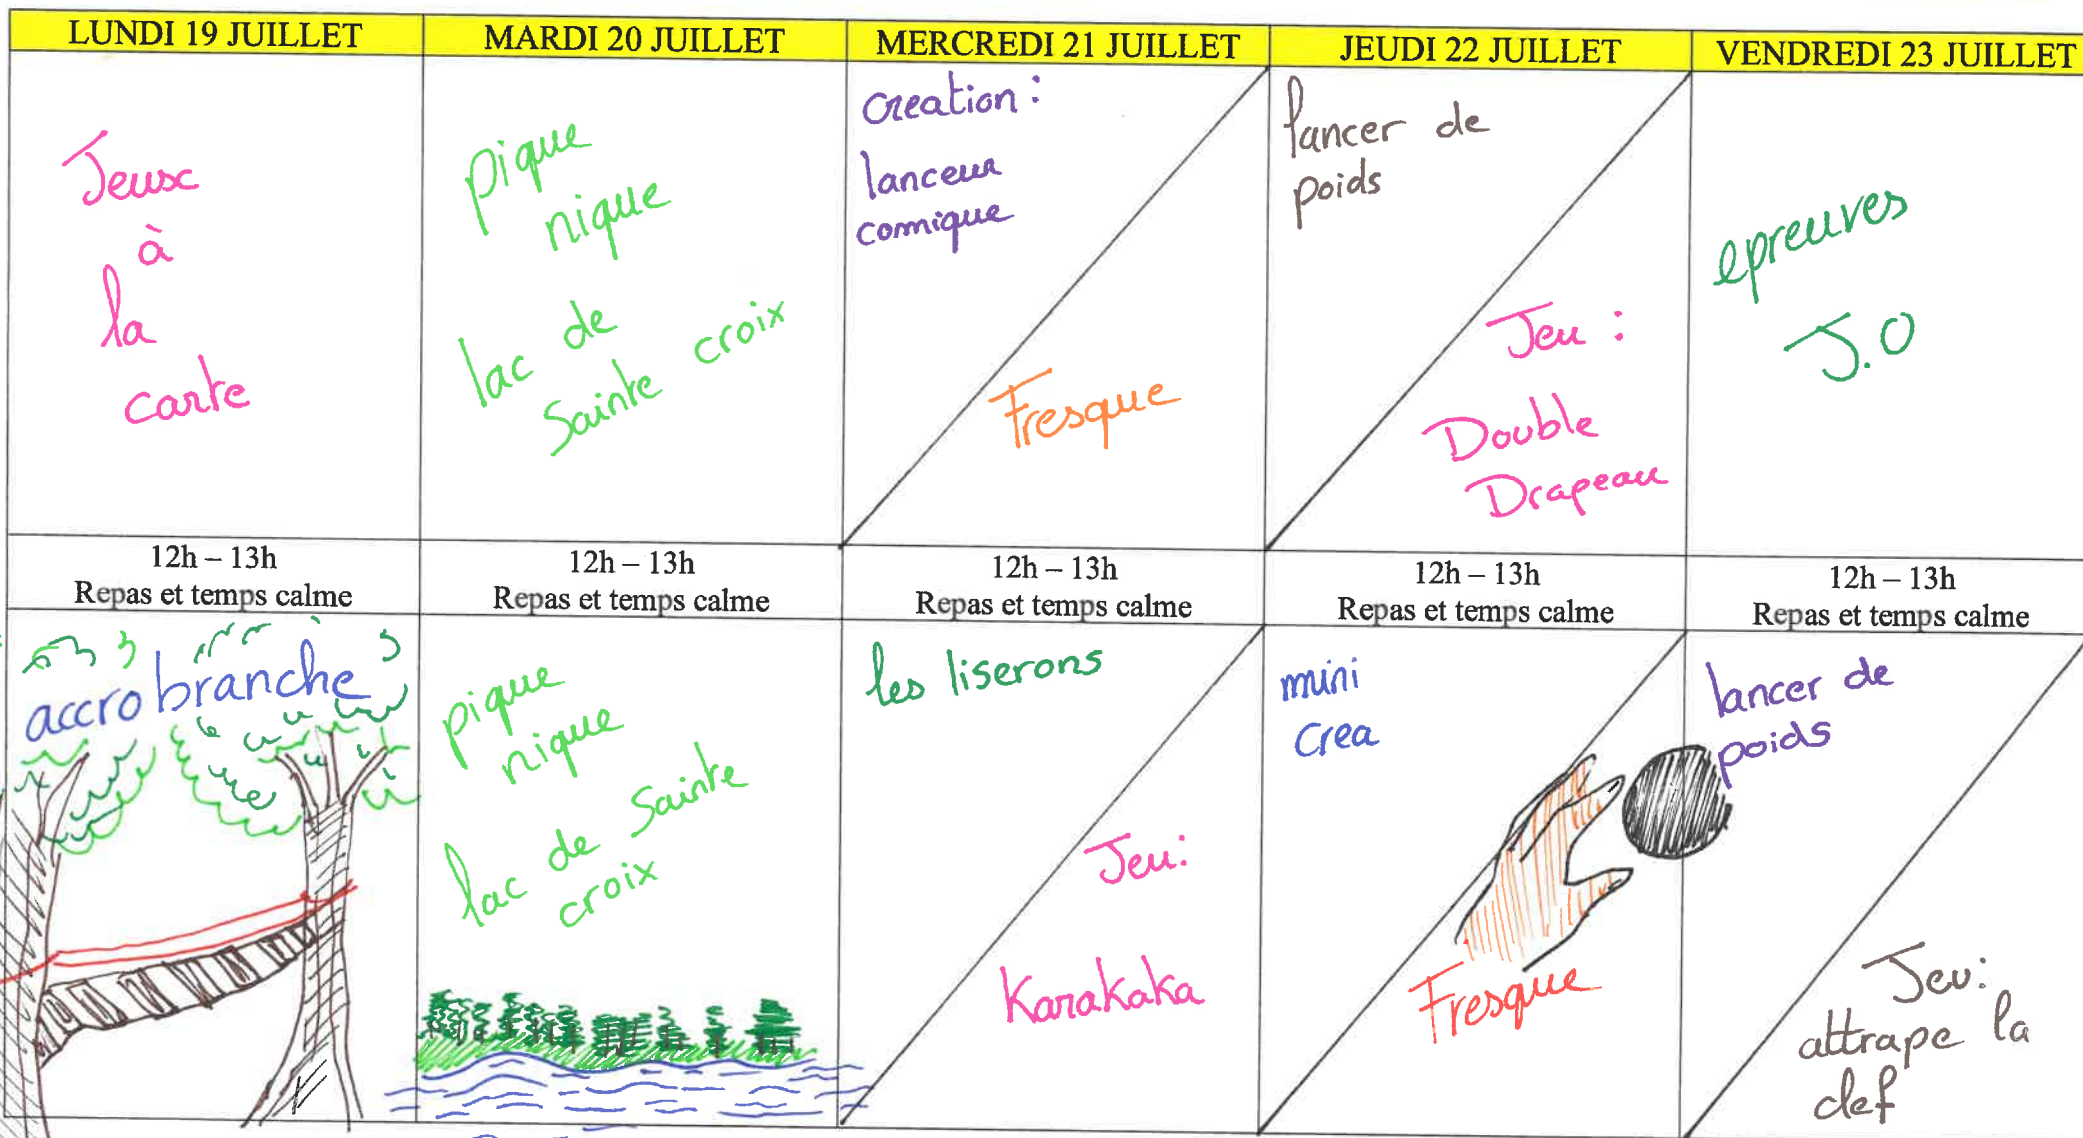 LUNDI 19 JUILLET
MARDI 20 JUILLET
MERCREDI 21 JUILLET
JEUDI 22 JUILLET
VENDREDI 23 JUILLET
Jeux
à
la
carte
pique
nique
lac de
Sainte croix
creation :
lanceur
comique
Fresque
lancer de
poids
Jeu :
Double
Drapeau
epreuves
J.O
12h – 13h
Repas et temps calme
12h – 13h
Repas et temps calme
12h – 13h
Repas et temps calme
12h – 13h
Repas et temps calme
12h – 13h
Repas et temps calme
accrobranche
pique
nique
lac de Sainte
croix
les liserons
Jeu:
Karakaka
mini
crea
Fresque
lancer de
poids
Jeu:
attrape la
clef